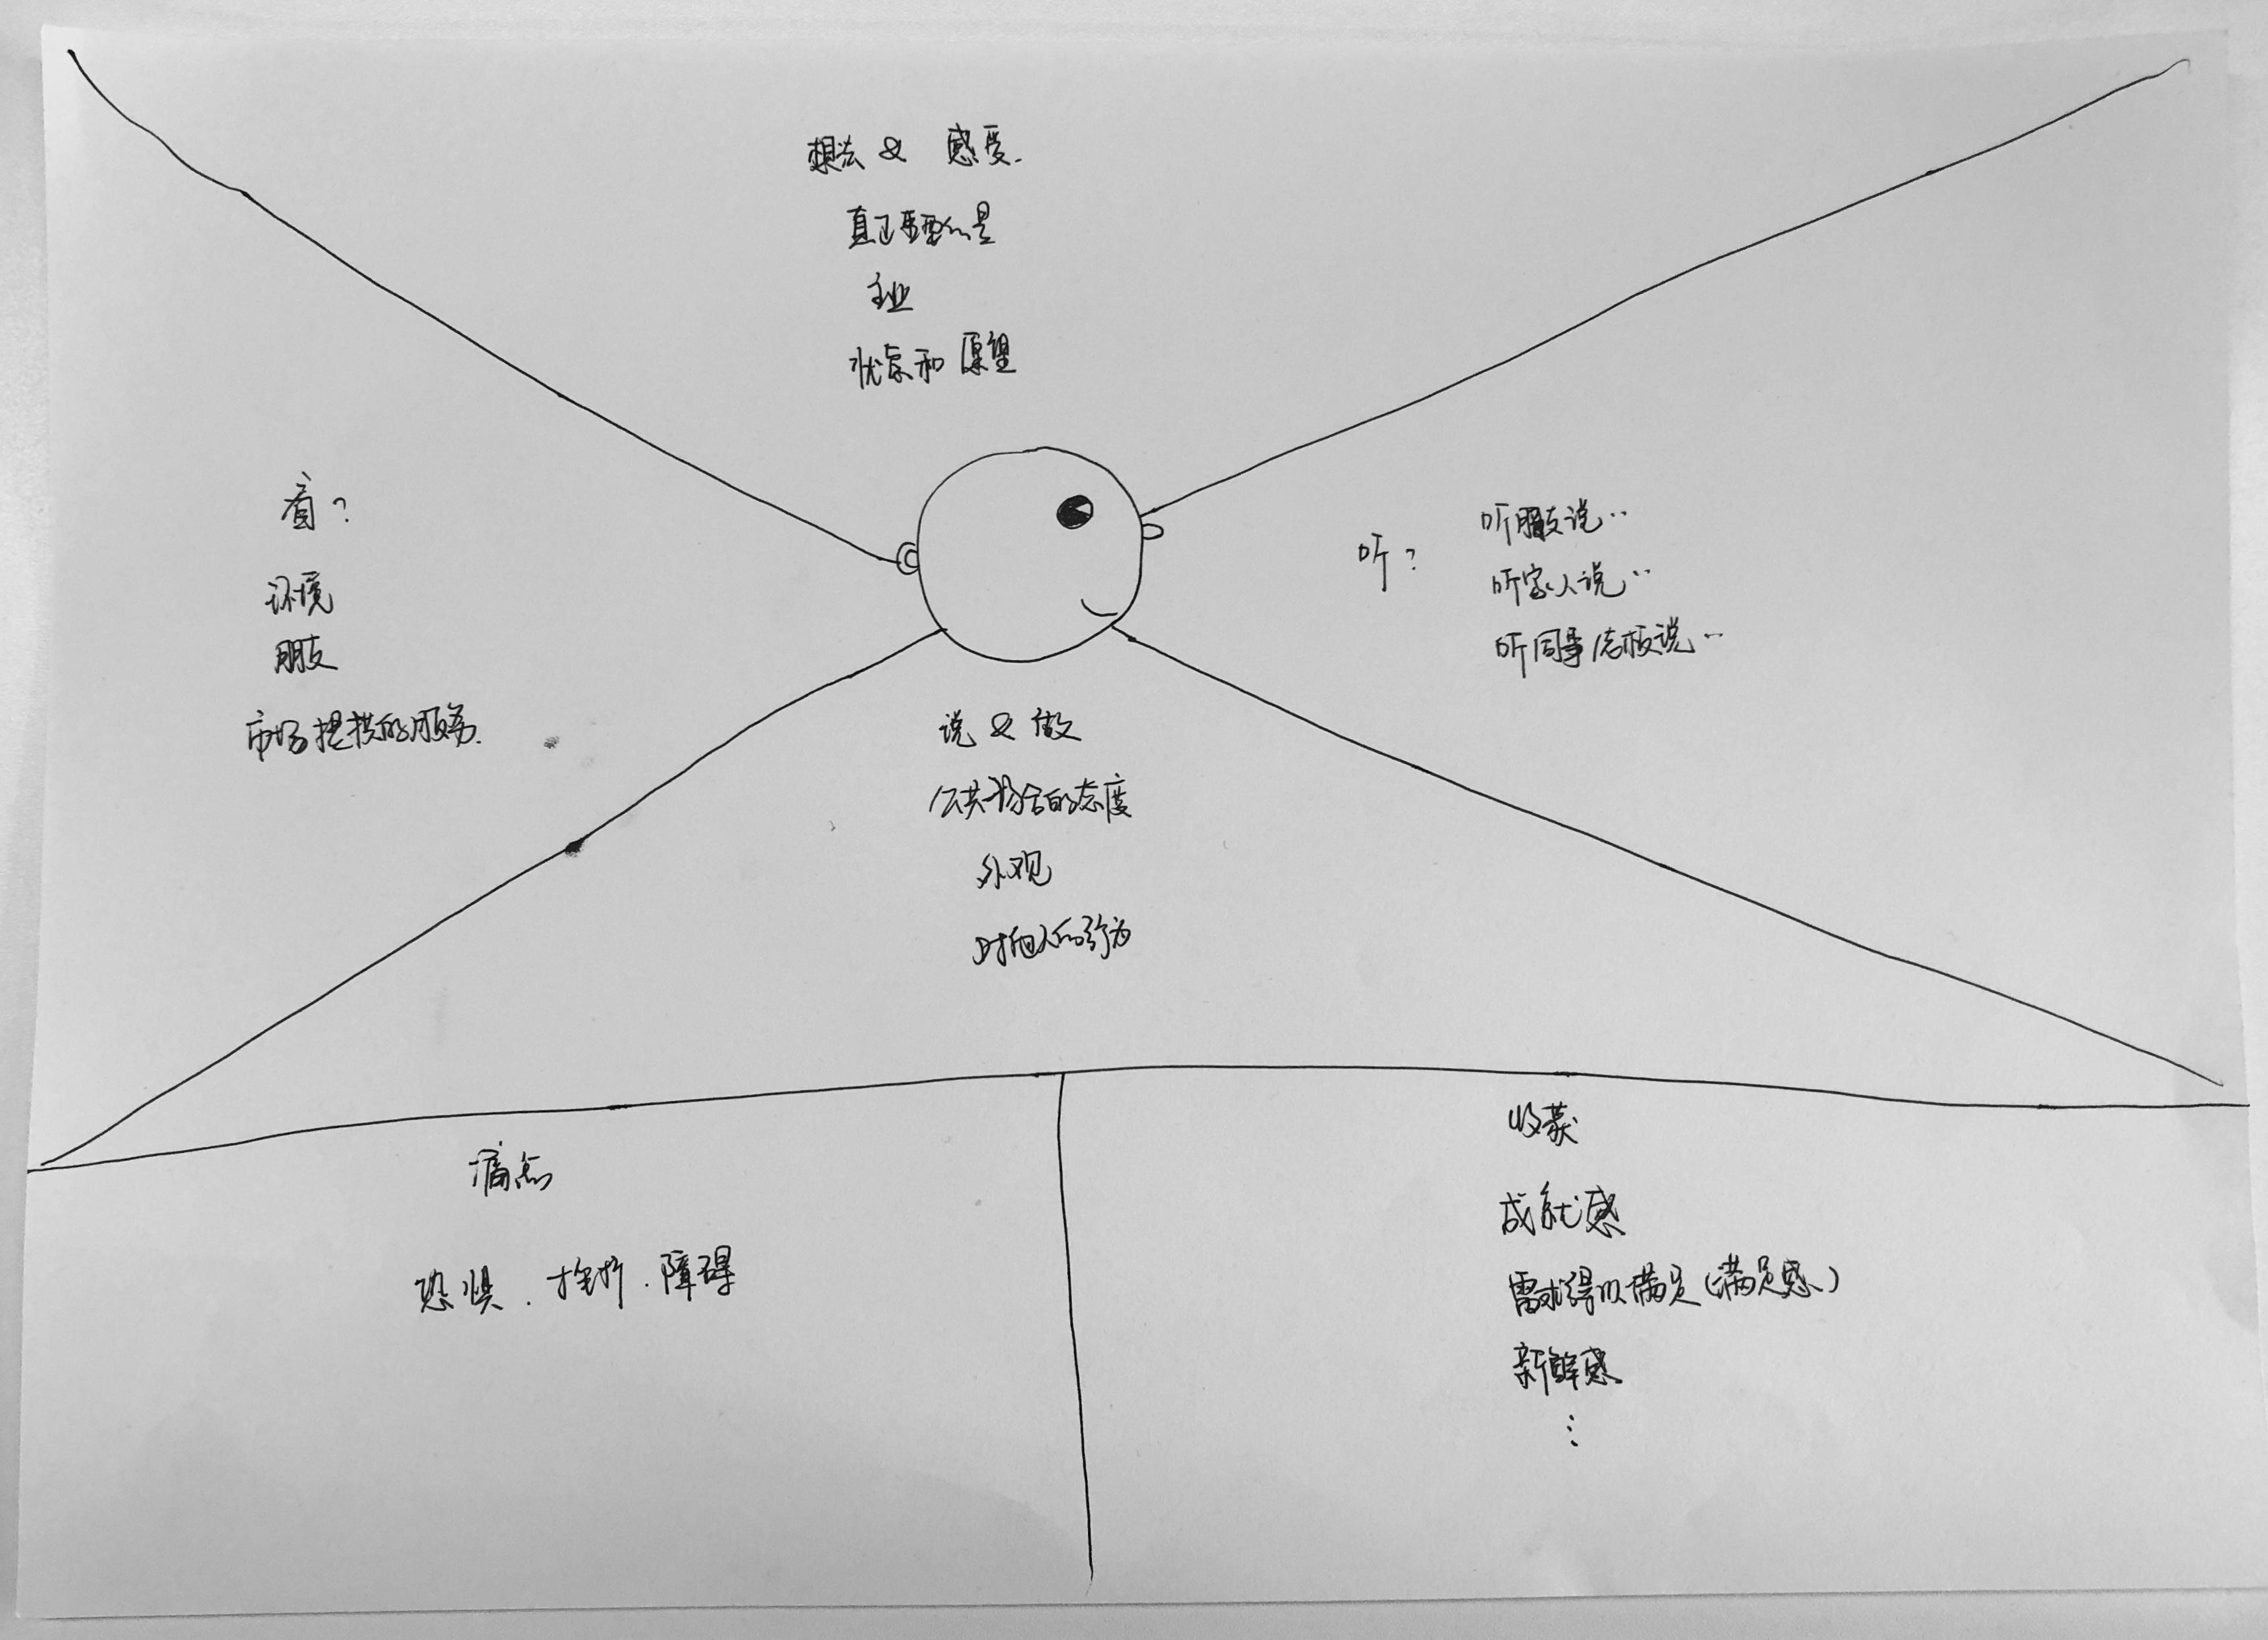 想法 & 感受.
真正重要的是
主业
忧虑和愿望
看?
环境
朋友
市场提供的服务.
听?
听朋友说..
听家人说..
听同事/老板说..
说 & 做
公共场合的态度
外观
对他人的行为
痛点
恐惧.挫折.障碍
收获
成就感
需求得以满足(满足感)
新鲜感
⋮